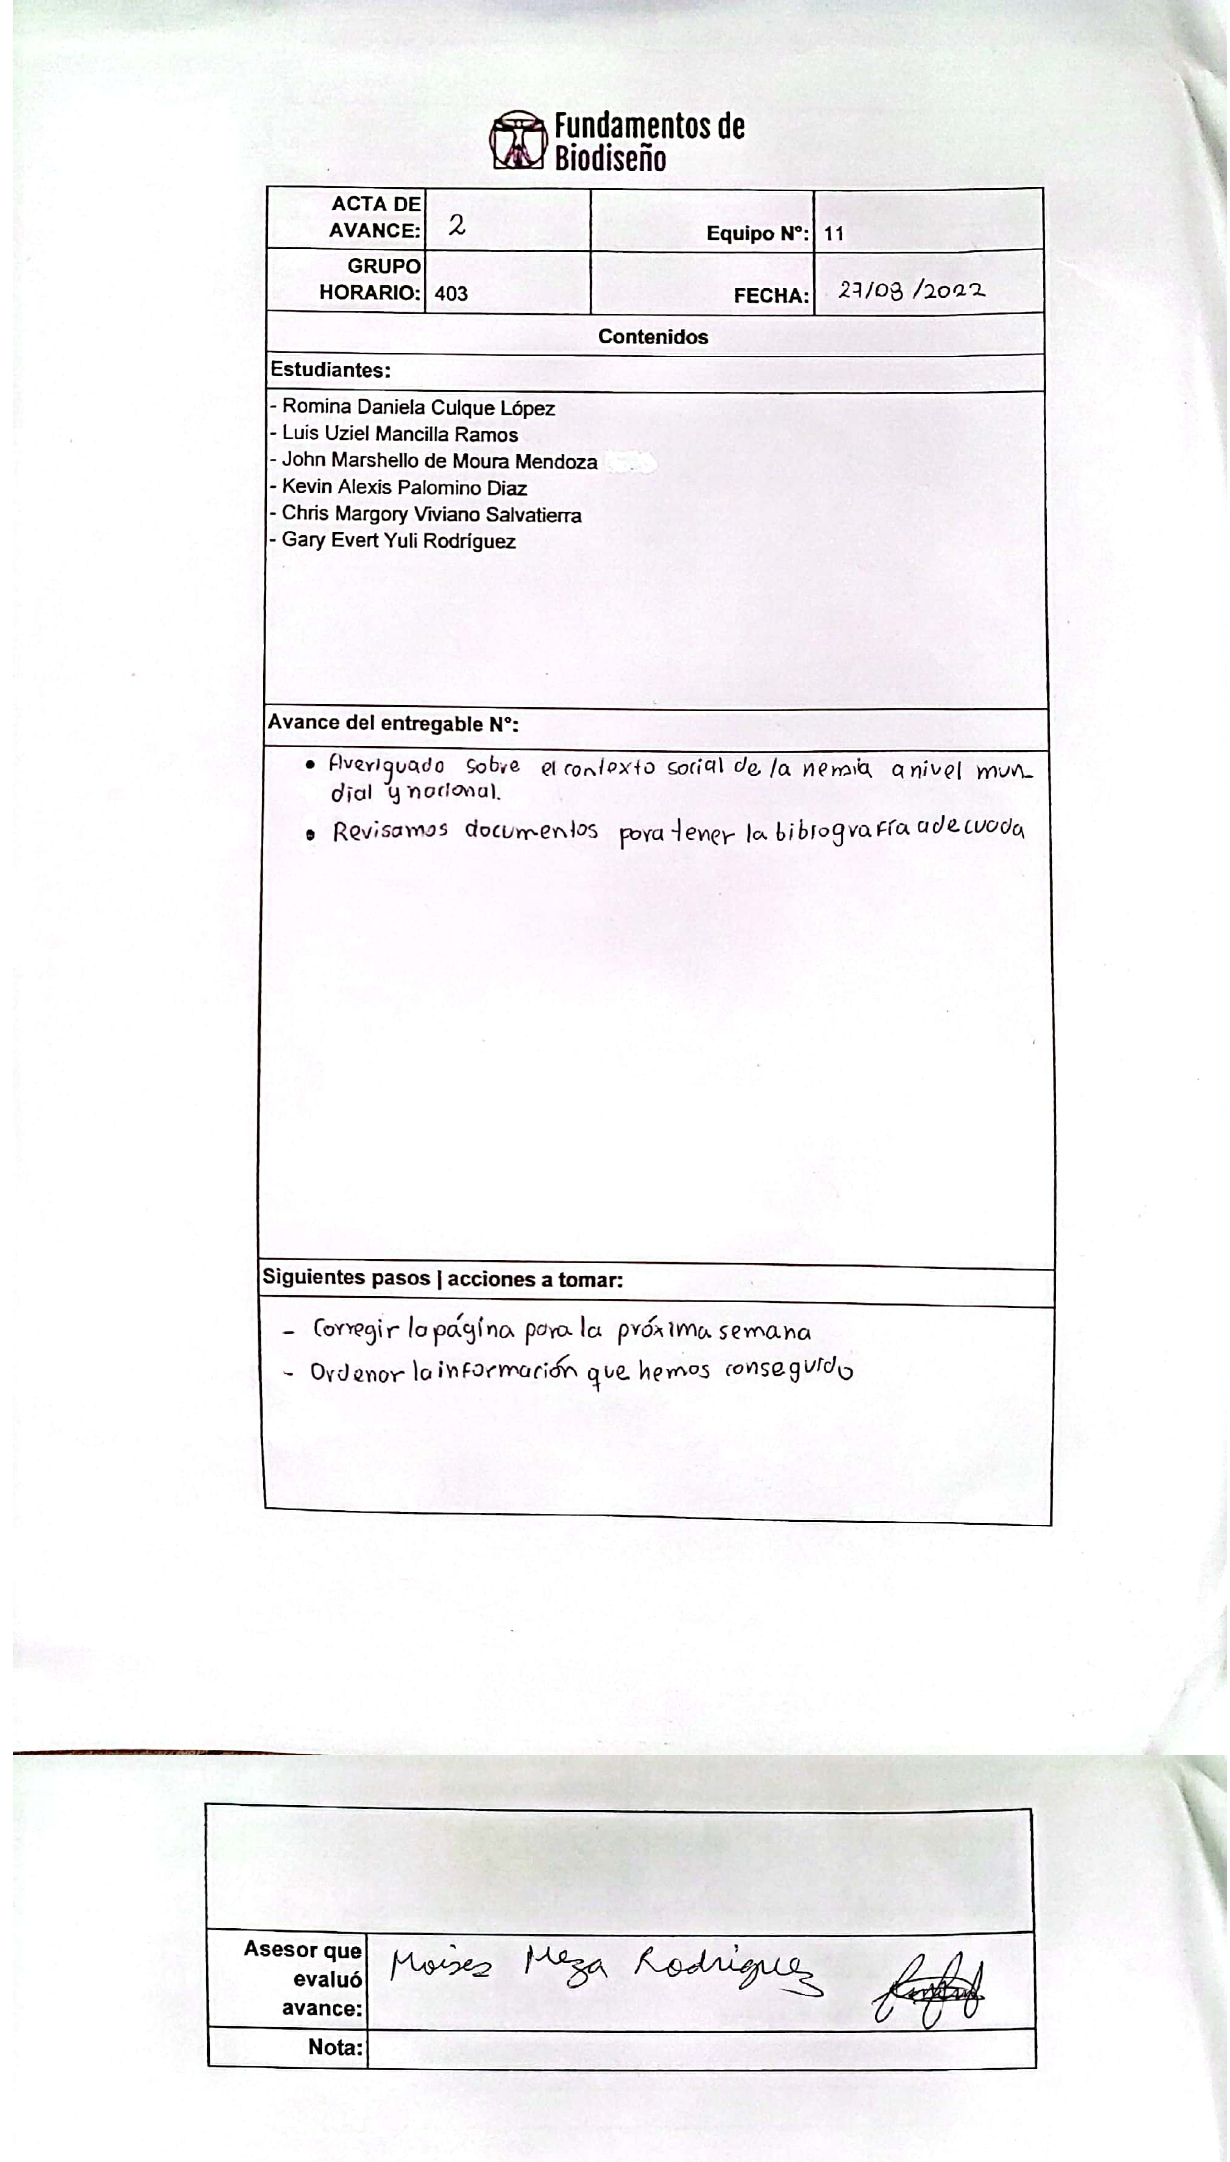 Fundamentos de
Biodiseño
ACTA DE
AVANCE: 2
Equipo Nº: 11
GRUPO
HORARIO: 403
FECHA: 27/08/2022
Contenidos
Estudiantes:
- Romina Daniela Culque López
- Luis Uziel Mancilla Ramos
- John Marshello de Moura Mendoza
- Kevin Alexis Palomino Diaz
- Chris Margory Viviano Salvatierra
- Gary Evert Yuli Rodríguez
Avance del entregable Nº:
• Averiguado sobre el contexto social de la a nivel mun
dial y nacional.
• Revisamos documentos para tener la bibiografía adecuada
Siguientes pasos | acciones a tomar:
- Corregir la página para la próxima semana
- Ordenar la información que hemos conseguido
Asesor que
evaluó
avance:
Moises Meza Rodriguez
Nota: